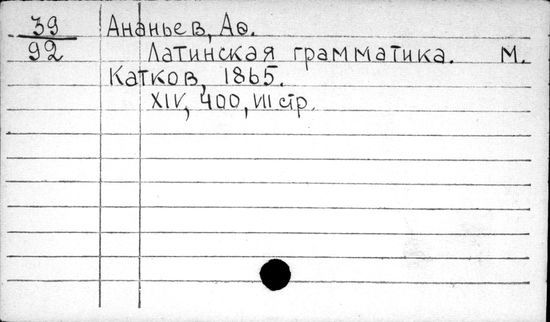 39 Ананьев, Аѳ.
92 Латинская грамматика. М.
Катков, 1865.
XIV, 400, VII стр.